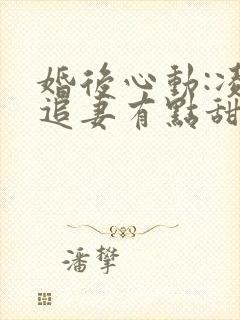 婚後心動:凌
追妻有點甜
潘攀